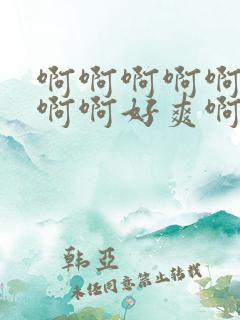 啊啊啊啊啊
啊啊好爽啊
韩亚
未经同意禁止转载